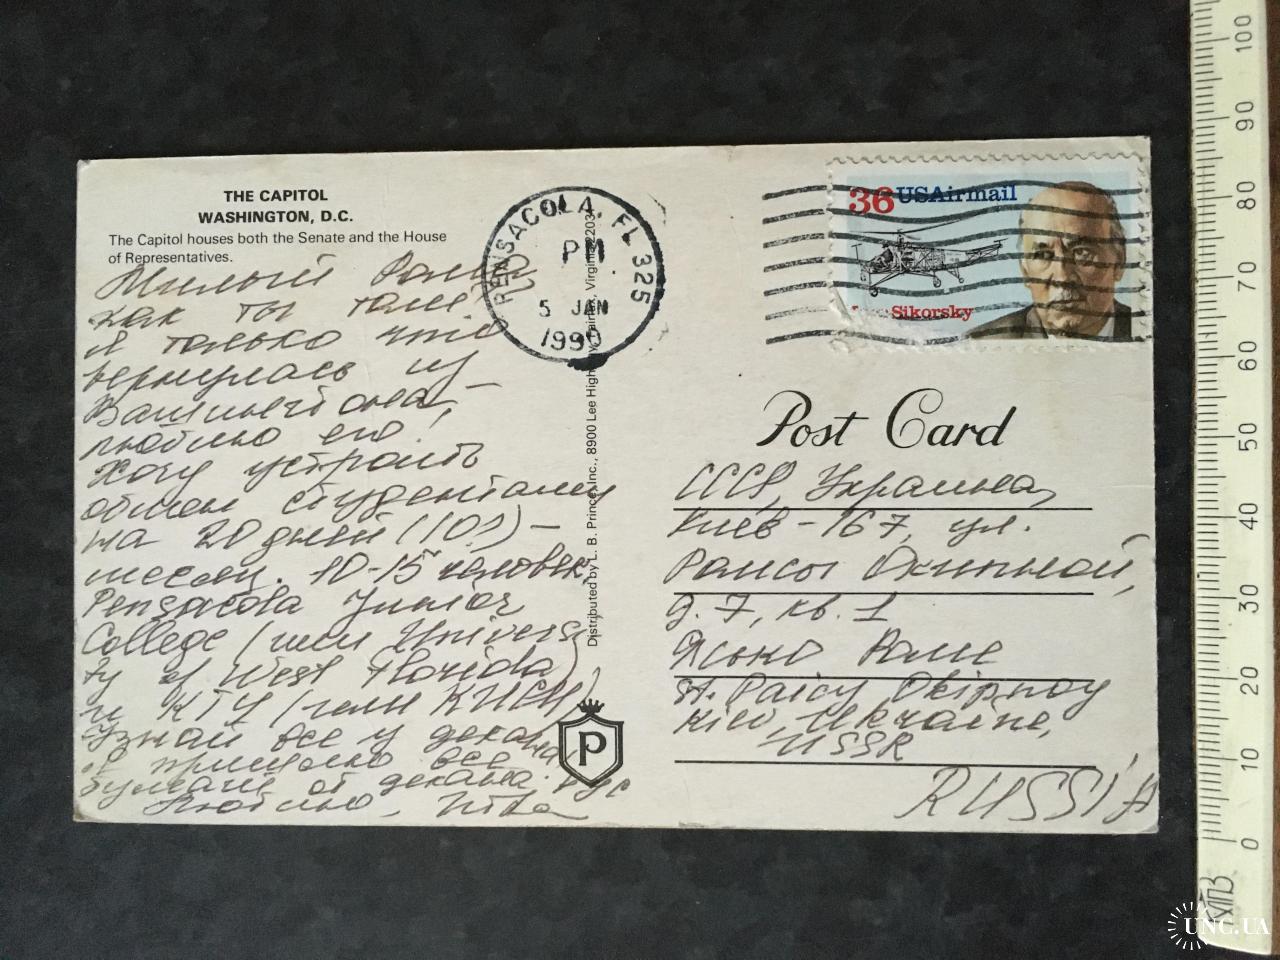 THE CAPITOL
WASHINGTON, D.C.
The Capitol houses both the Senate and the House
of Representatives.
Милый Рома
как ты там?
я только что
вернулась из
Вашингтона,
люблю его!
Хочу устроить
обмен студентами
на 20 дней (10?) –
месяц. 10-15 человек.
Pensacola Junior
College (или Universi
ty of West Florida)
и КГУ (или КИСИ)
Узнай все у декана
я пришлю все на
бумаге от декана.
Люблю, Nika
PENSACOLA, FL 325
PM
5 JAN
1990
Distributed by L. B. Prince Inc., 8900 Lee High
Virginia 2203
P
36 USAirmail
Sikorsky
Post Card
СССР, Украина,
Киев - 167, ул.
Раисы Окипной,
д. 7, кв. 1
Роме
st. Raicy Okipnoy
Kiev, Ukraine,
USSR
RUSSIA
100
90
80
70
60
50
40
30
20
10
0
ХІПЗ
UNC.UA